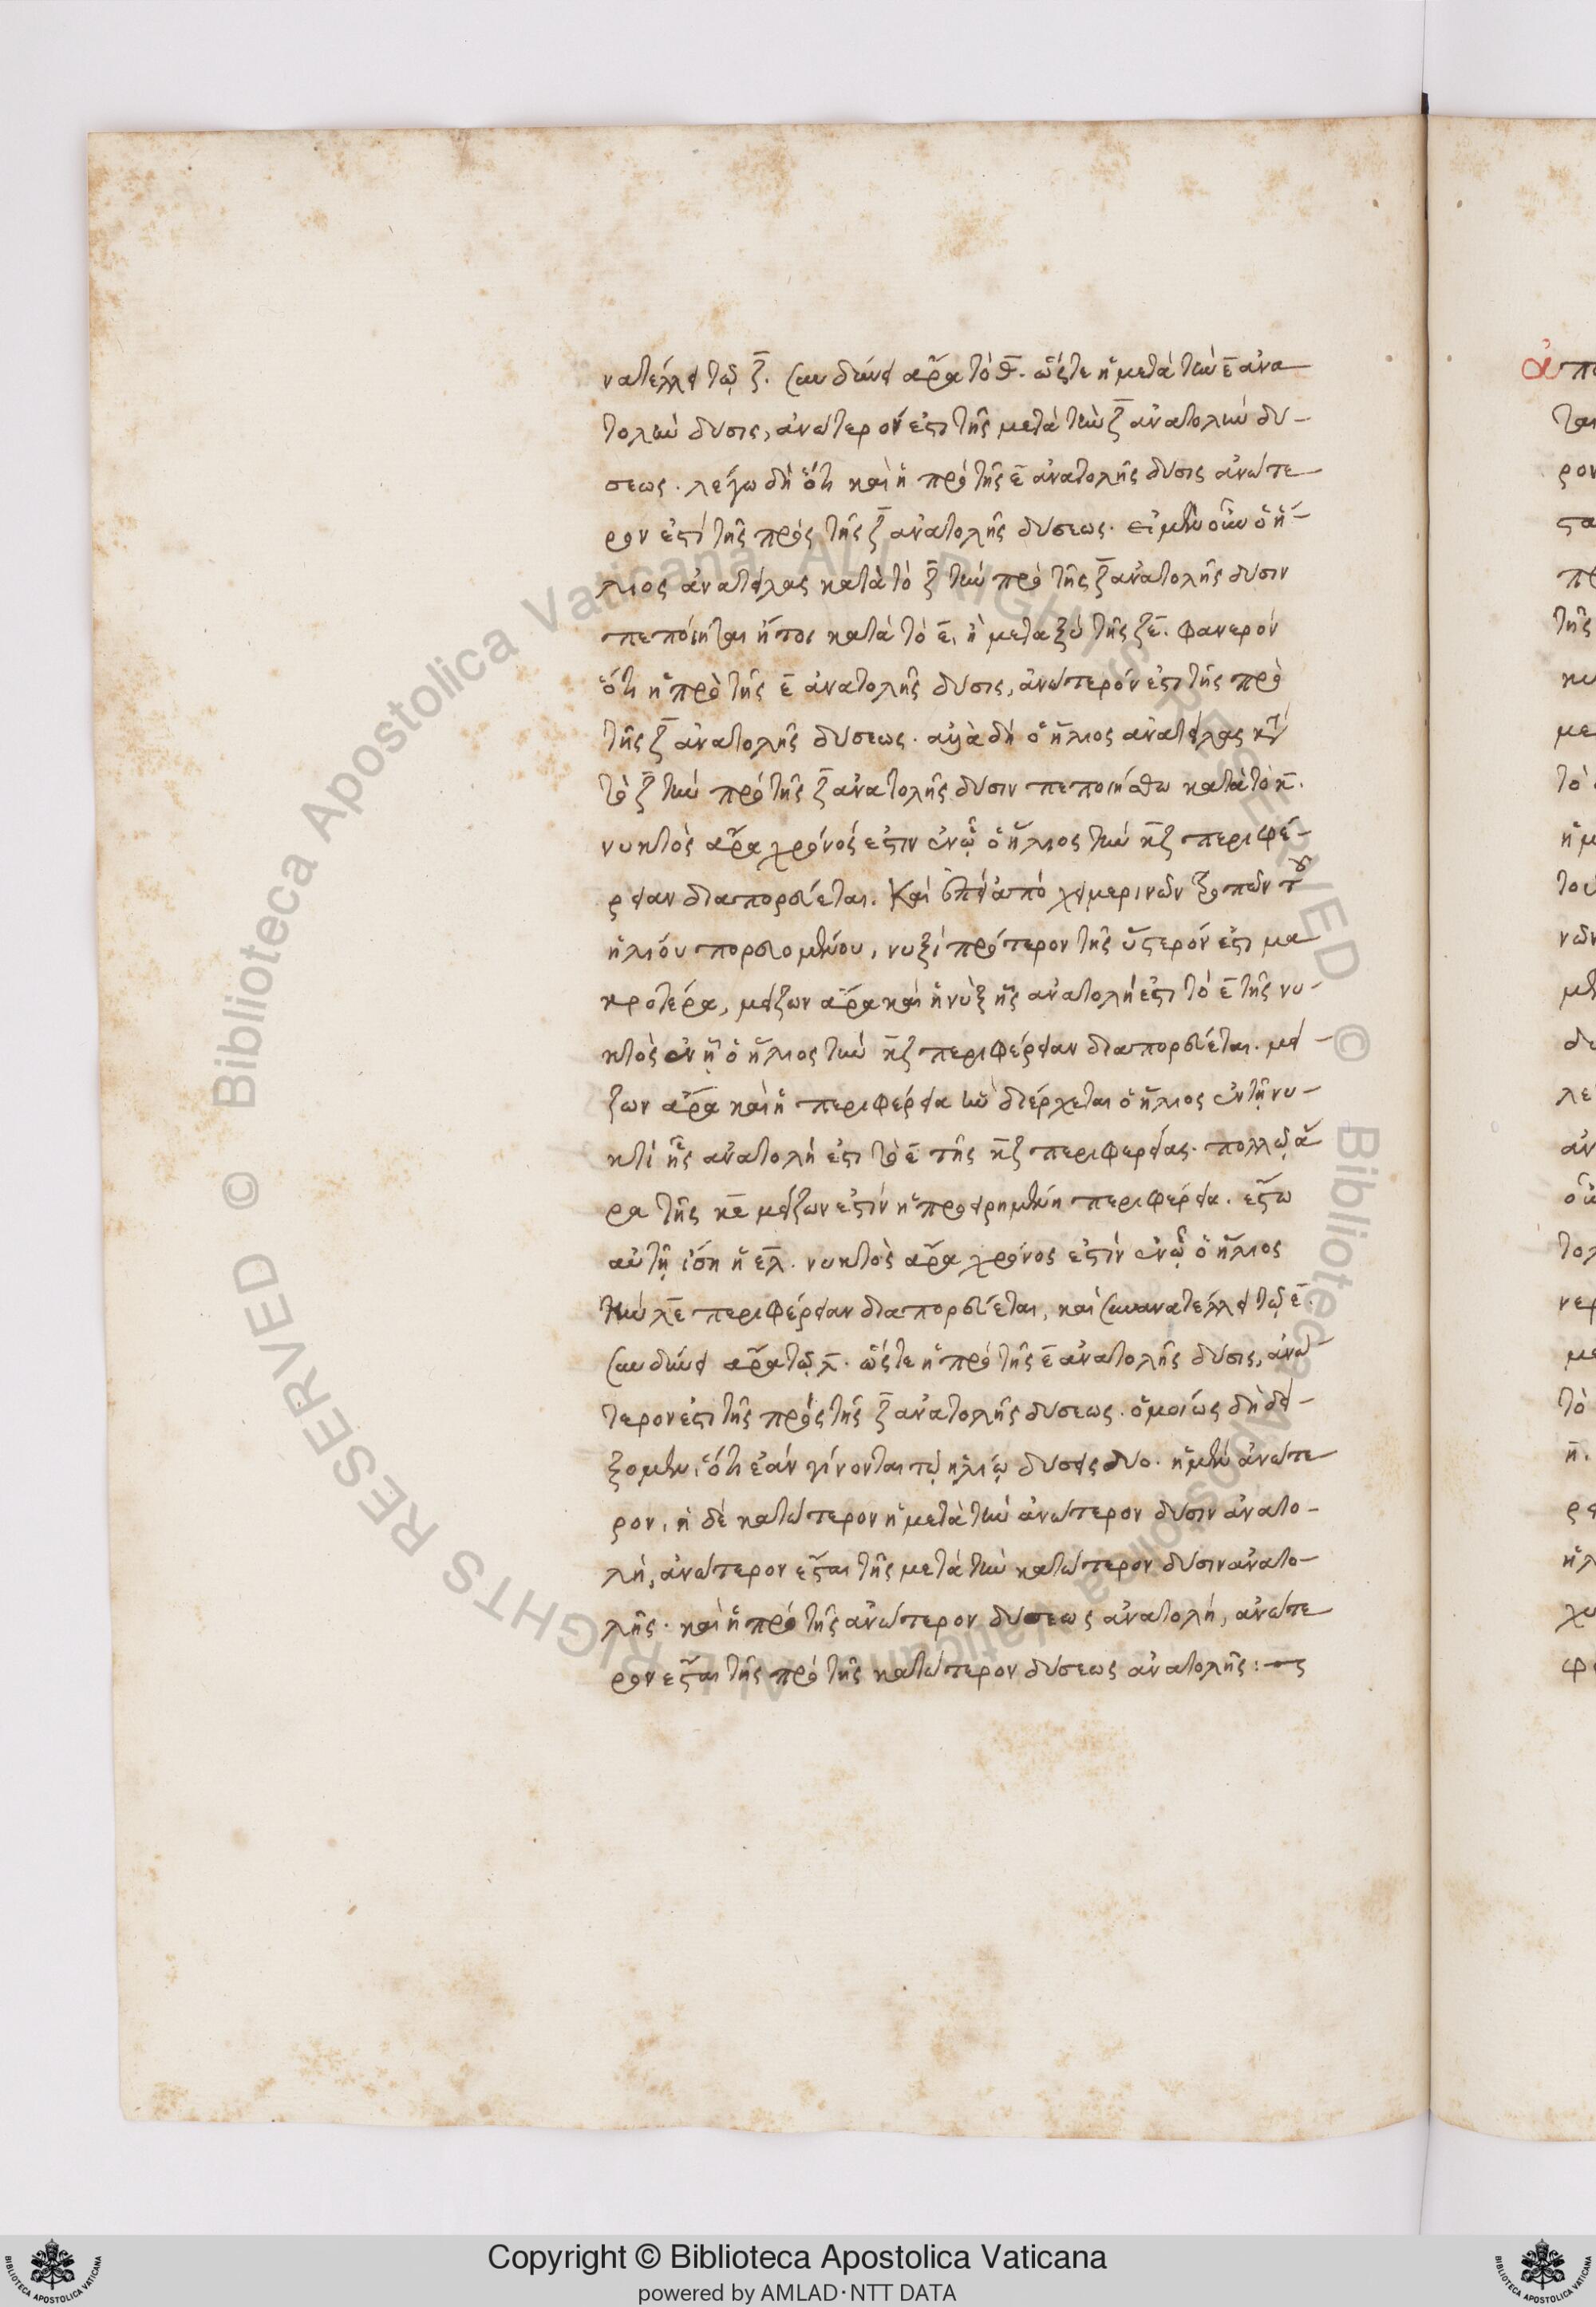 νατέλλει τῷ ζ̅. συνδύνει ἄρα τὸ θ̅. ὥστε ἡ μετὰ τὴν ε̅ ἀνα
τολὴν δύσις, ἀνώτερόν ἐστι τῆς μετὰ τὴν ζ̅ ἀνατολὴν δύ-
σεως. λέγω δὴ ὅτι καὶ ἡ πρὸ τῆς ε̅ ἀνατολῆς δύσις ἀνώτε
ρον ἐστὶ τῆς πρὸς τῆς ζ̅ ἀνατολῆς δύσεως. εἰ μὲν οὖν ὁ ἥ-
λιος ἀνατείλας κατὰ τὸ ζ̅ τὴν πρὸ τῆς ζ̅ ἀνατολῆς δύσιν
πεποίηται ἤτοι κατὰ τὸ ε̅, ἢ μεταξὺ τῆς ζε̅. φανερὸν
ὅτι ἡ πρὸ τῆς ε̅ ἀνατολῆς δύσις, ἀνώτερόν ἐστι τῆς πρὸ
τῆς ζ̅ ἀνατολῆς δύσεως. ἀλλὰ δὴ ὁ ἥλιος ἀνατείλας κατὰ
τὸ ζ̅ τὴν πρὸ τῆς ζ̅ ἀνατολῆς δύσιν πεποιήσθω κατὰ τὸ κ̅.
νυκτὸς ἄρα χρόνος ἐστὶν ἐν ᾧ ὁ ἥλιος τὴν κ̅ζ περιφέ-
ρειαν διαπορεύεται. καὶ ἐπεὶ ἀπὸ χειμερινῶν τροπῶν τοῦ
ἡλίου πορευομένου, νὺξ ἡ πρότερον τῆς ὕστερόν ἐστι μα
κροτέρα, μείζων ἄρα καὶ ἡ νὺξ ἧς ἀνατολή ἐστι τὸ ε̅ τῆς νυ-
κτὸς ἐν ᾗ ὁ ἥλιος τὴν κ̅ζ περιφέρειαν διαπορεύεται. μεί-
ζων ἄρα καὶ ἡ περιφέρεια ἣν διέρχεται ὁ ἥλιος ἐν τῇ νυ-
κτὶ ἧς ἀνατολή ἐστι τὸ ε̅ τῆς κ̅ζ περιφερείας. πολλῷ ἄ
ρα τῆς κε̅ μείζων ἐστὶν ἡ προειρημένη περιφέρεια. ἔστω
αὐτῇ ἴση ἡ ελ̅. νυκτὸς ἄρα χρόνος ἐστὶν ἐν ᾧ ὁ ἥλιος
τὴν λε̅ περιφέρειαν διαπορεύεται, καὶ συνανατέλλει τῷ ε̅.
συνδύνει ἄρα τῷ λ̅. ὥστε ἡ πρὸ τῆς ε̅ ἀνατολῆς δύσις, ἀνώ
τερον ἐστι τῆς πρὸς τῆς ζ̅ ἀνατολῆς δύσεως. ὁμοίως δὴ δεί-
ξομεν, ὅτι ἐὰν γίνονται τῷ ἡλίῳ δύσεις δύο. ἡ μὲν ἀνώτε
ρον, ἡ δὲ κατώτερον ἡ μετὰ τὴν ἀνώτερον δύσιν ἀνατο-
λή, ἀνώτερον ἔσται τῆς μετὰ τὴν κατώτερον δύσιν ἀνατο-
λῆς. καὶ ἡ πρὸ τῆς ἀνώτερον δύσεως ἀνατολή, ἀνώτε
ρον ἔσται τῆς πρὸ τῆς κατώτερον δύσεως ἀνατολῆς:
Copyright © Biblioteca Apostolica Vaticana
powered by AMLAD·NTT DATA